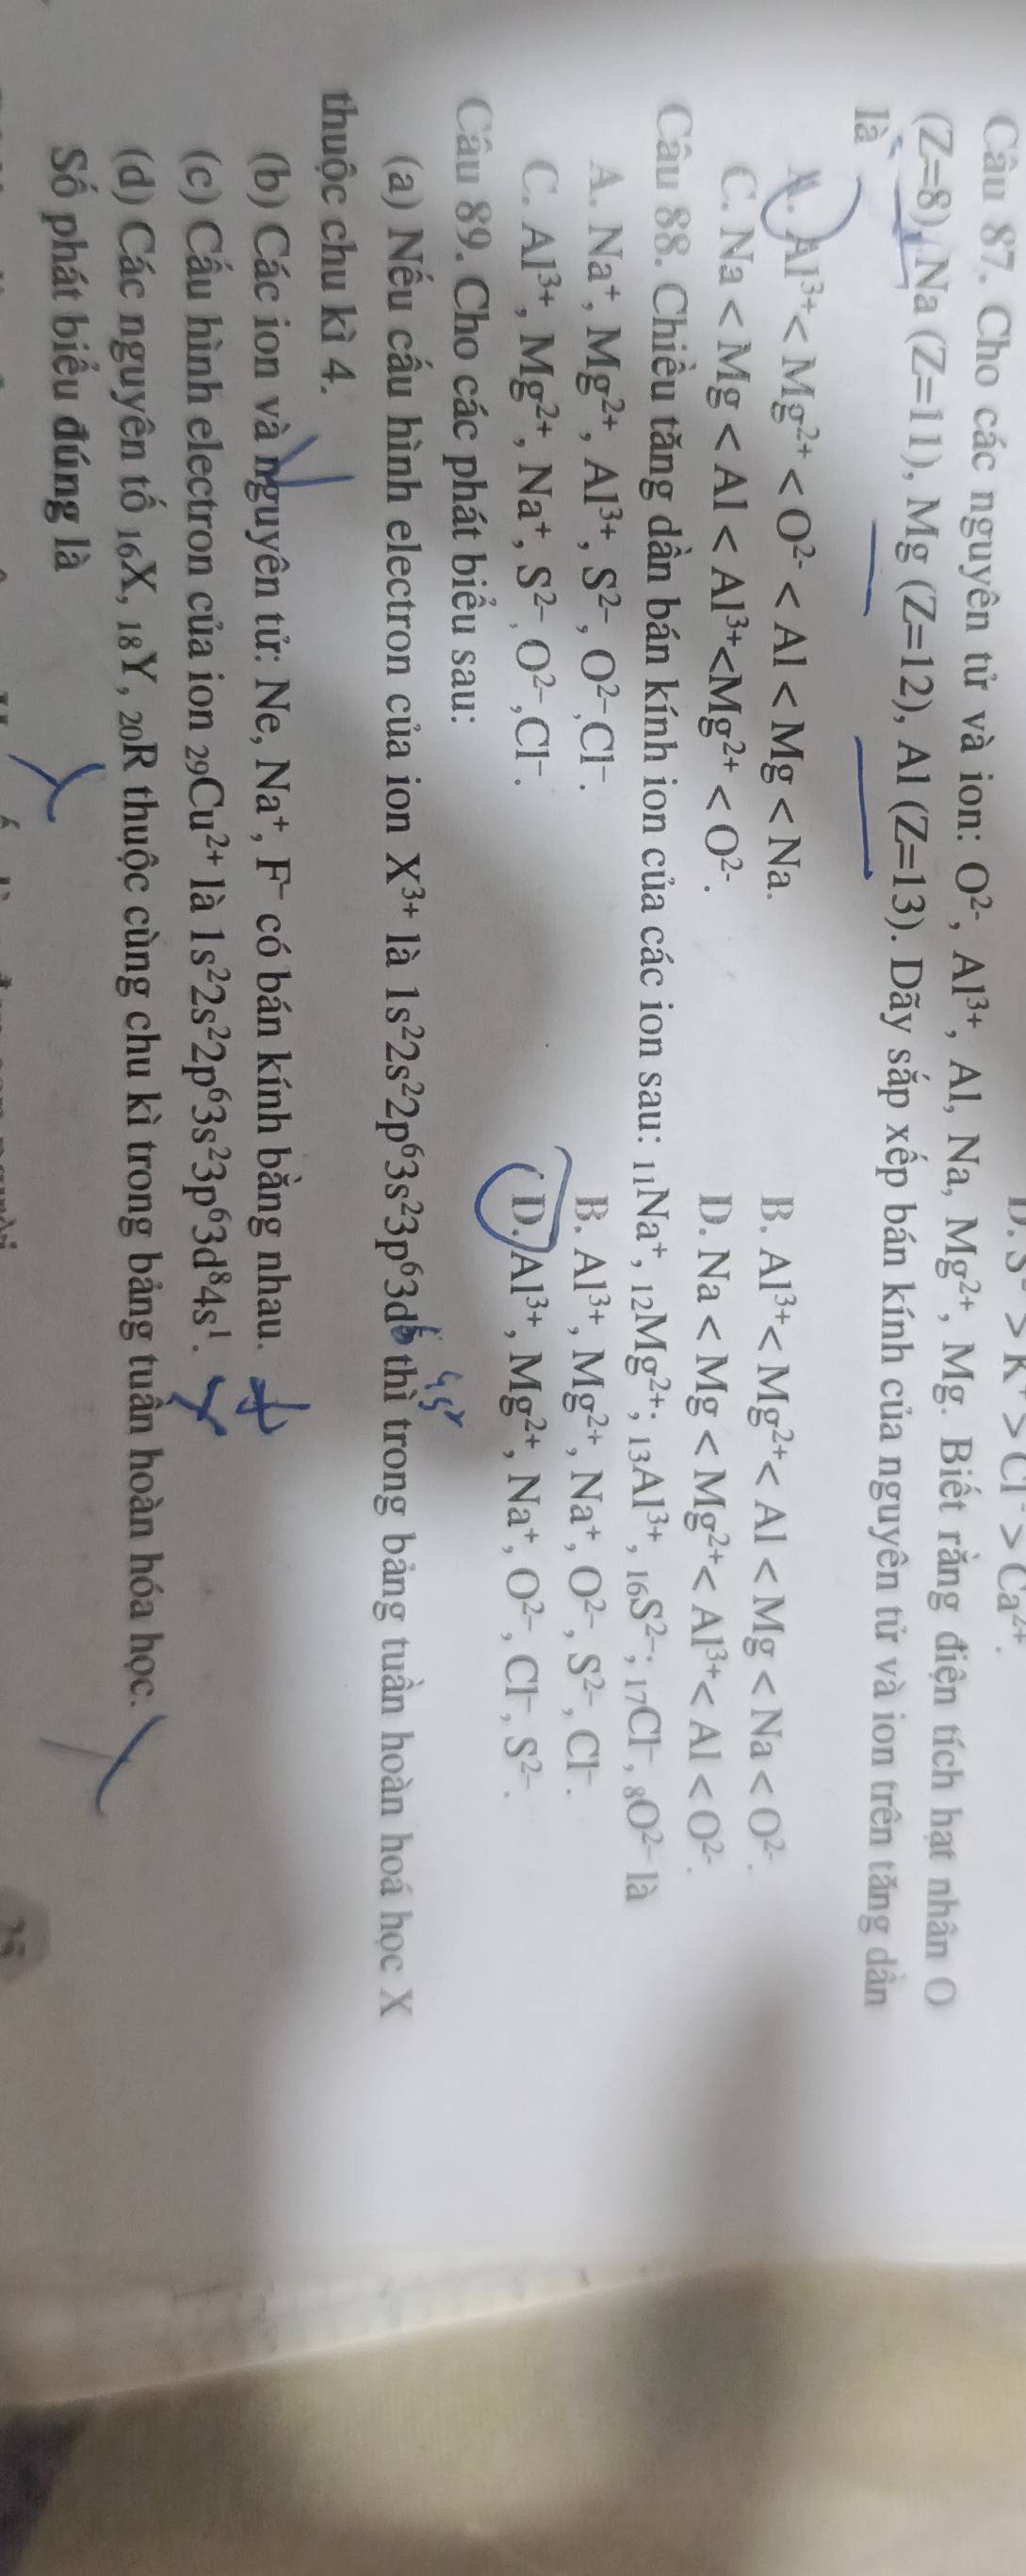 D. S²⁻ > K⁺ > Cl⁻ > Ca²⁺.
Câu 87. Cho các nguyên tử và ion: O²⁻, Al³⁺, Al, Na, Mg²⁺, Mg. Biết rằng điện tích hạt nhân O
(Z=8), Na (Z=11), Mg (Z=12), Al (Z=13). Dãy sắp xếp bán kính của nguyên tử và ion trên tăng dần
là
A. Al³⁺< Mg²⁺ < O²⁻ < Al < Mg < Na. B. Al³⁺< Mg²⁺< Al < Mg < Na < O²⁻.
C. Na < Mg < Al < Al³⁺<Mg²⁺ < O²⁻. D. Na < Mg < Mg²⁺< Al³⁺< Al < O²⁻.
Câu 88. Chiều tăng dần bán kính ion của các ion sau: ₁₁Na⁺, ₁₂Mg²⁺; ₁₃Al³⁺, ₁₆S²⁻; ₁₇Cl⁻, ₈O²⁻ là
A. Na⁺, Mg²⁺, Al³⁺, S²⁻, O²⁻,Cl⁻. B. Al³⁺, Mg²⁺, Na⁺, O²⁻, S²⁻, Cl⁻.
C. Al³⁺, Mg²⁺, Na⁺, S²⁻, O²⁻,Cl⁻. D. Al³⁺, Mg²⁺, Na⁺, O²⁻, Cl⁻, S²⁻.
Câu 89. Cho các phát biểu sau:
4s²
(a) Nếu cấu hình electron của ion X³⁺ là 1s²2s²2p⁶3s²3p⁶3d⁵ thì trong bảng tuần hoàn hoá học X
thuộc chu kì 4.
(b) Các ion và nguyên tử: Ne, Na⁺, F⁻ có bán kính bằng nhau.
(c) Cấu hình electron của ion ₂₉Cu²⁺ là 1s²2s²2p⁶3s²3p⁶3d⁸4s¹.
(d) Các nguyên tố ₁₆X, ₁₈Y, ₂₀R thuộc cùng chu kì trong bảng tuần hoàn hóa học.
Số phát biểu đúng là
25